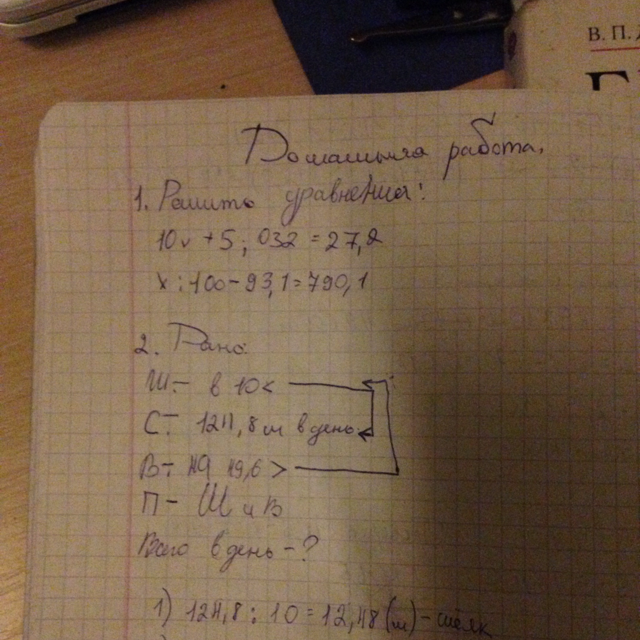 В. П.
Домашняя работа.
1. Решить уравнения:
10x + 5,032 = 27,2
x : 100 - 93,1 = 790,1
2. Дано:
Ш - в 10 <
С - 124,8 м в день
В - на 19,6 >
П - Ш и В
Всего в день - ?
1) 124,8 : 10 = 12,48 (м) - шёлк